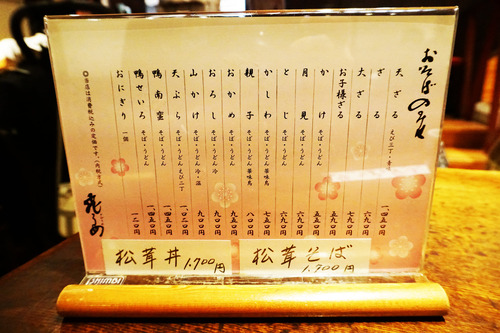 おそば のみもの
天ざる えび二丁・
ざる
大ざる
お子様ざる
かけ そば・うどん
月見 そば・うどん
とじ そば・うどん
かしわ そば・うどん
親子 そば・うどん
おかめ そば・うどん
おろし そば・うどん 冷
山かけ そば・うどん 冷・温
天ぷら そば・うどん えび二丁
鴨南蛮 そば・うどん
鴨せいろ そば・うどん
おにぎり 一個
一、四五〇円
五九〇円
六九〇円
六九〇円
七五〇円
八〇〇円
九五〇円
九〇〇円
九〇〇円
一、〇二〇円
一、四五〇円
一、四五〇円
一二〇円
◎当店は消費税込みの定価です。
松茸丼 1.700円
松茸そば 1.700円